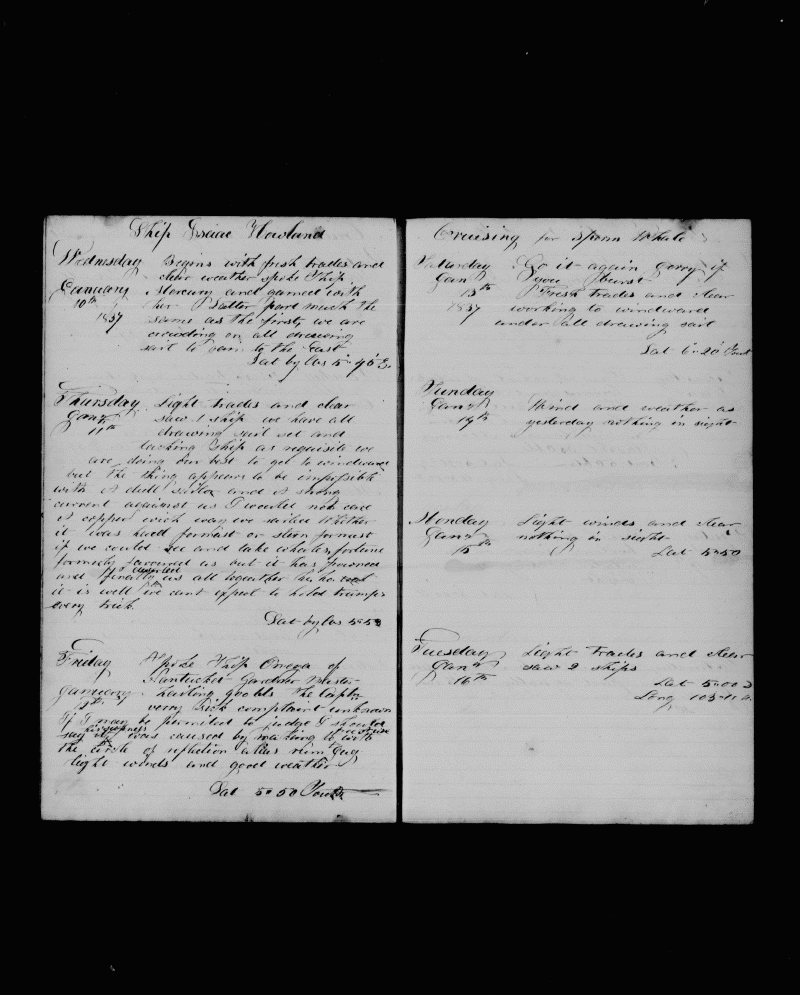 Ship Isaac Howland
Wednesday Begins with fresh trades and
clear weather spoke Ship
January Mercury and gamed with
10th her Latter part much the
1837 same as the first, we are
crowding on all drawing
sail to the East
Lat by obs 5"
Thursday Light trades and clear
Jany saw 1 ship we have all
11th drawing sail set and
tacking ship as requisite we
are doing our best to get to windward
but the thing appears to be impossible
with A dull sailor and A strong
current against us I would not care
A copper wich way we sailed whether
it was head formost or stern formost
if we could see and take whales, fortune
formerly favoured us but it has
and finally us all together
it is well we cant expect to hold trumps
every trick
Lat by obs
Friday Spoke Ship Omega of
Nantucket Gardner Master
January the Capt
very sick complaint unknown
If I may be permitted to judge I should
say was caused by
the circle of
light winds and good weather
Lat 5"50 South
Cruising for Sperm Whale
Saturday Go it again gerry if
Jany you burst
13th Fresh trades and clear
1837 working to windward
under all drawing sail
Lat 6"20
Sunday
Jany Wind and weather as
14th yesterday nothing in sight
Monday Light winds and clear
Jany nothing in sight
15th Lat 5"50
Tuesday Light trades and clear
Jany saw 2 ships
16th Lat 5"00 S
Long